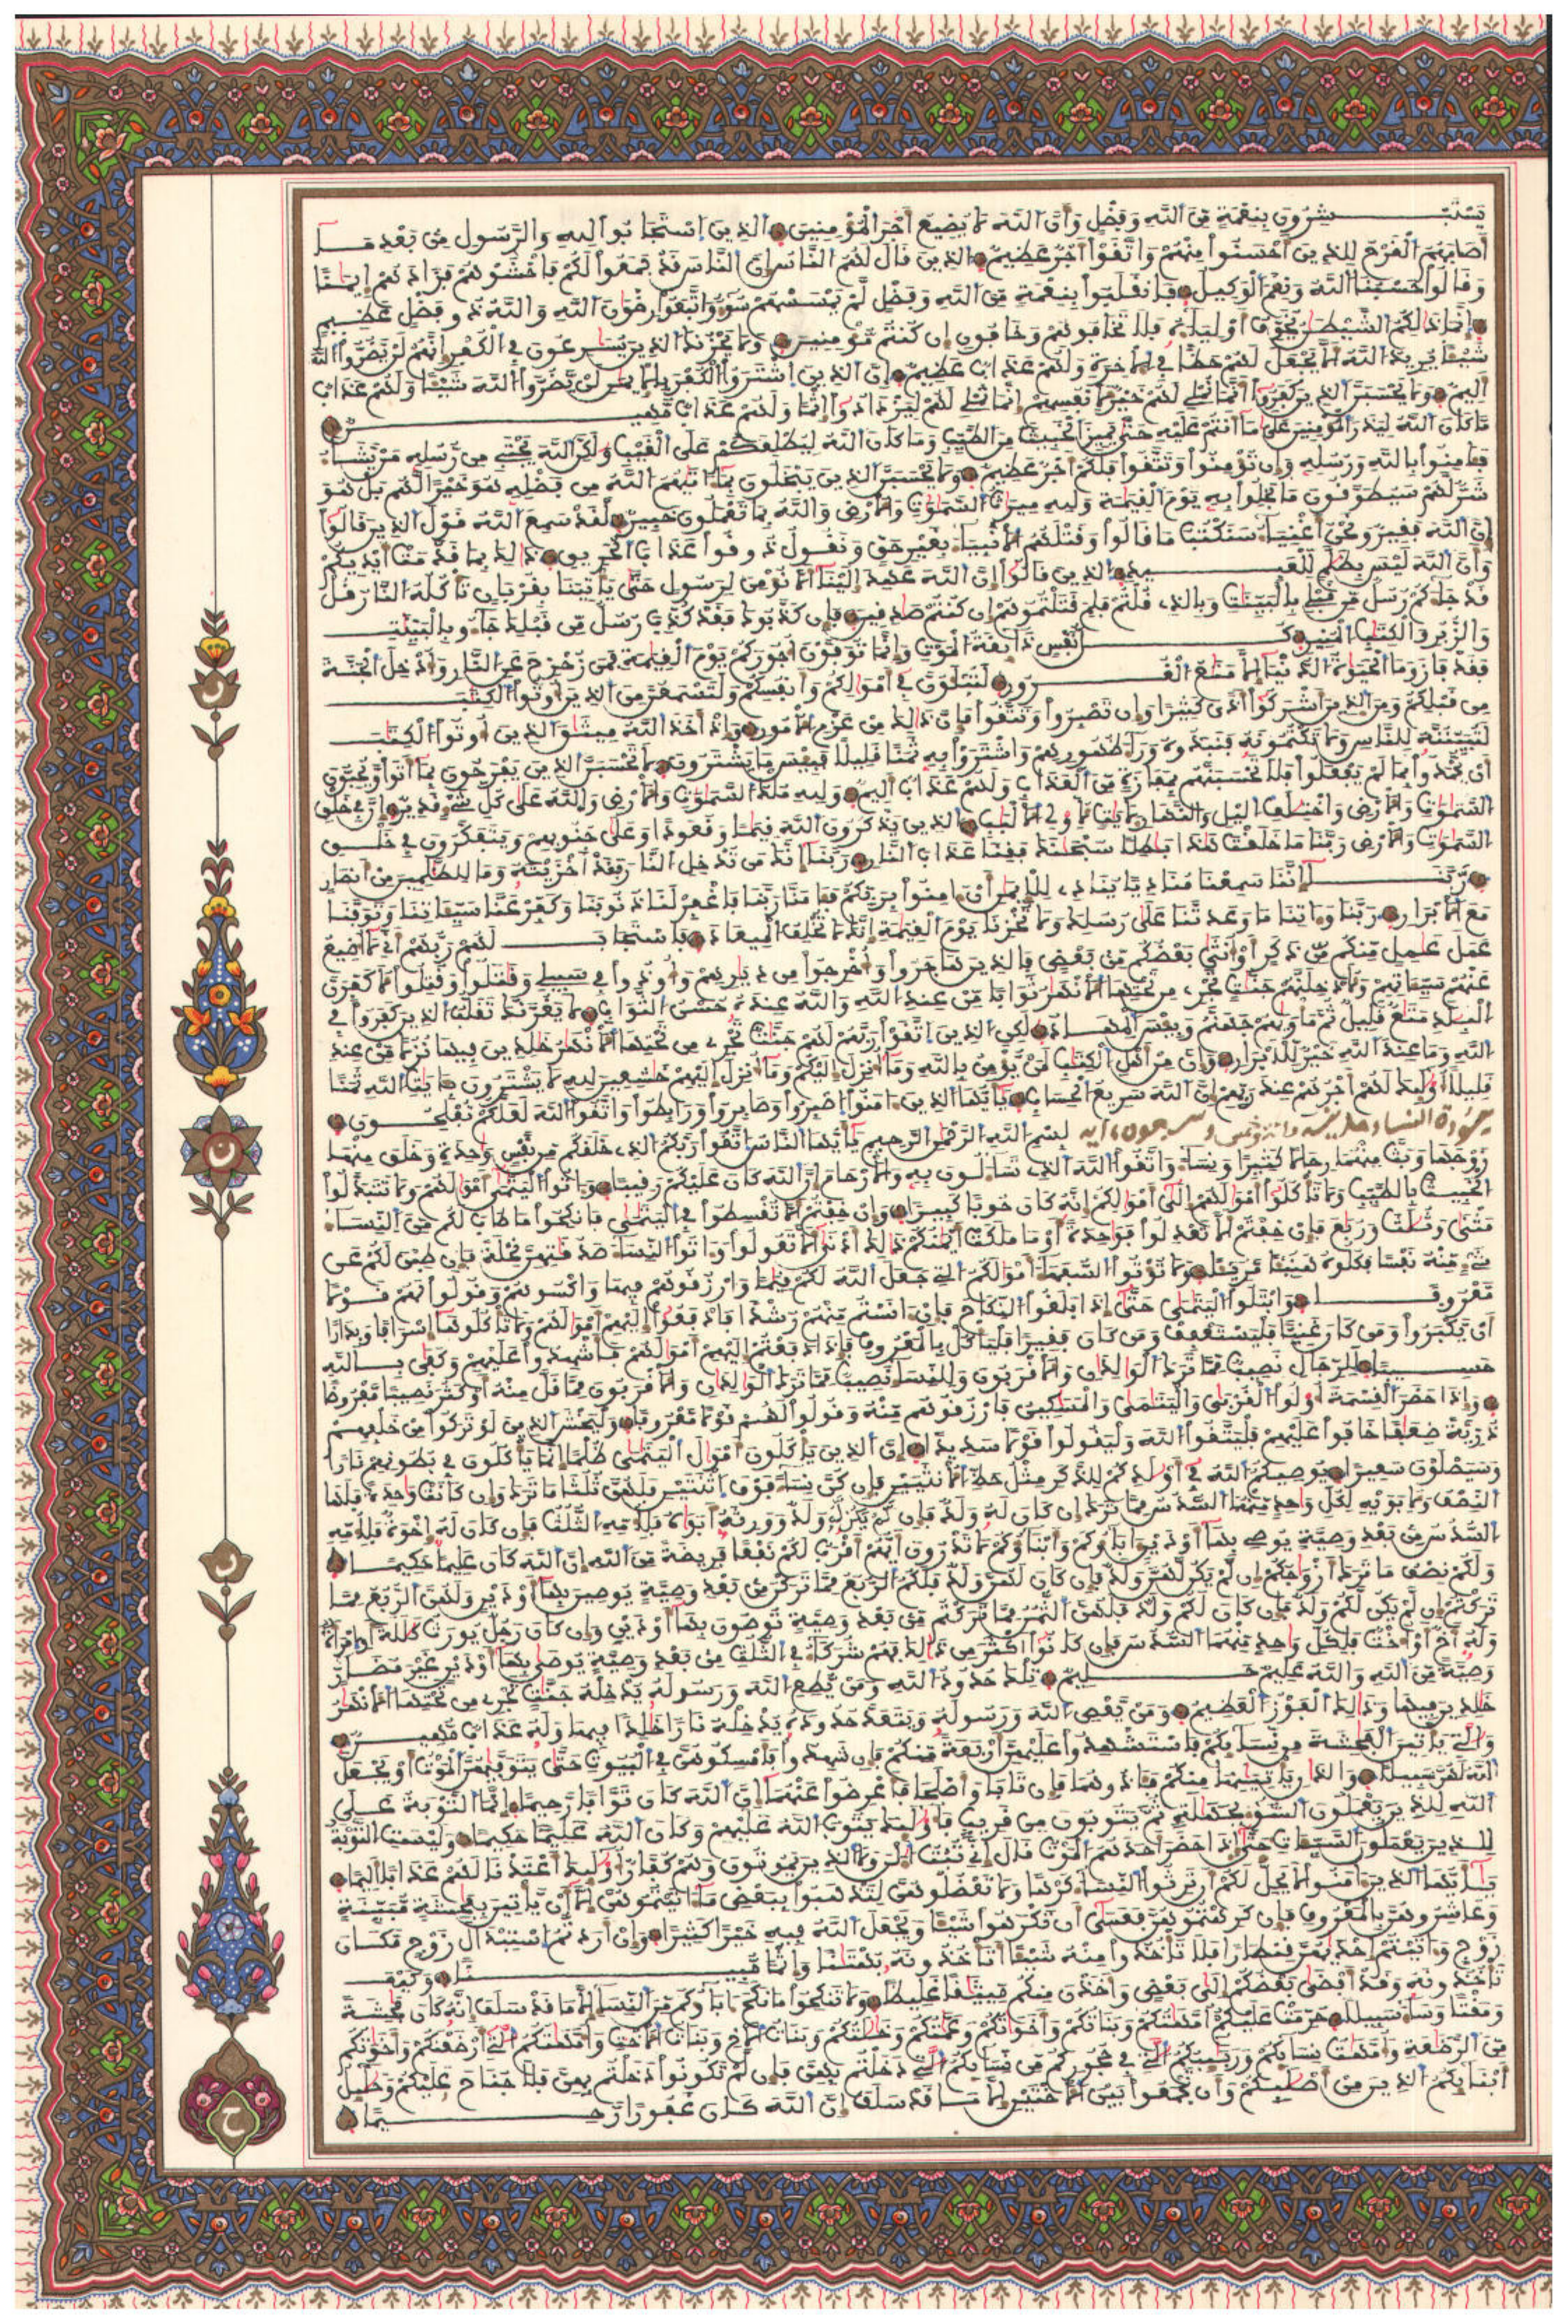 يستبشرون بنعمة من الله وفضل وأن الله لا يضيع أجر المومنين الذين استجابوا لله والرسول من بعد ما
أصابهم القرح للذين أحسنوا منهم واتقوا أجر عظيم الذين قال لهم الناس إن الناس قد جمعوا لكم فاخشوهم فزادهم إيمنا
وقالوا حسبنا الله ونعم الوكيل فانقلبوا بنعمة من الله وفضل لم يمسسهم سوء واتبعوا رضون الله والله ذو فضل عظيم
إنما ذلكم الشيطن يخوف أولياءه فلا تخافوهم وخافون إن كنتم مومنين ولا يحزنك الذين يسرعون في الكفر إنهم لن يضروا الله
شيئا يريد الله ألا يجعل لهم حظا في الاخرة ولهم عذاب عظيم إن الذين اشتروا الكفر بالإيمن لن يضروا الله شيئا ولهم عذاب
أليم ولا يحسبن الذين كفروا أنما نملي لهم خير لأنفسهم إنما نملي لهم ليزدادوا إثما ولهم عذاب مهين
ما كان الله ليذر المومنين على ما أنتم عليه حتى يميز الخبيث من الطيب وما كان الله ليطلعكم على الغيب ولكن الله يجتبي من رسله من يشاء
فامنوا بالله ورسله وإن تومنوا وتتقوا فلكم أجر عظيم ولا يحسبن الذين يبخلون بما ءاتيهم الله من فضله هو خيرا لهم بل هو
شر لهم سيطوقون ما بخلوا به يوم القيمة ولله ميرث السموت والأرض والله بما تعملون خبير لقد سمع الله قول الذين قالوا
إن الله فقير ونحن أغنياء سنكتب ما قالوا وقتلهم الأنبياء بغير حق ونقول ذوقوا عذاب الحريق ذلك بما قدمت أيديكم
وأن الله ليس بظلم للعبيد الذين قالوا إن الله عهد إلينا ألا نومن لرسول حتى ياتينا بقربان تاكله النار قل
قد جاءكم رسل من قبلي بالبينت وبالذي قلتم فلم قتلتموهم إن كنتم صدقين فإن كذبوك فقد كذب رسل من قبلك جاءو بالبينت
والزبر والكتب المنير كل نفس ذائقة الموت وإنما توفون أجوركم يوم القيمة فمن زحزح عن النار وأدخل الجنة
فقد فاز وما الحيوة الدنيا إلا متع الغرور لتبلون في أمولكم وأنفسكم ولتسمعن من الذين أوتوا الكتب
من قبلكم ومن الذين أشركوا أذى كثيرا وإن تصبروا وتتقوا فإن ذلك من عزم الأمور وإذ أخذ الله ميثق الذين أوتوا الكتب
لتبيننه للناس ولا تكتمونه فنبذوه وراء ظهورهم واشتروا به ثمنا قليلا فبيس ما يشترون لا تحسبن الذين يفرحون بما أتوا ويحبون
أن يحمدوا بما لم يفعلوا فلا تحسبنهم بمفازة من العذاب ولهم عذاب أليم ولله ملك السموت والأرض والله على كل شيء قدير إن في خلق
السموت والأرض واختلف اليل والنهار لأيت لأولي الألبب الذين يذكرون الله قيما وقعودا وعلى جنوبهم ويتفكرون في خلق
السموت والأرض ربنا ما خلقت هذا بطلا سبحنك فقنا عذاب النار ربنا إنك من تدخل النار فقد أخزيته وما للظلمين من أنصار
ربنا إننا سمعنا مناديا ينادي للإيمن أن امنوا بربكم فامنا ربنا فاغفر لنا ذنوبنا وكفر عنا سيئاتنا وتوفنا
مع الأبرار ربنا وءاتنا ما وعدتنا على رسلك ولا تخزنا يوم القيمة إنك لا تخلف الميعاد فاستجاب لهم ربهم أني لا أضيع
عمل عمل منكم من ذكر أو أنثى بعضكم من بعض فالذين هاجروا وأخرجوا من ديرهم وأوذوا في سبيلي وقتلوا وقتلوا لأكفرن
عنهم سيئاتهم ولأدخلنهم جنت تجري من تحتها الأنهر ثوابا من عند الله والله عنده حسن الثواب لا يغرنك تقلب الذين كفروا في
البلد متع قليل ثم ماويهم جهنم وبيس المهاد لكن الذين اتقوا ربهم لهم جنت تجري من تحتها الأنهر خلدين فيها نزلا من عند
الله وما عند الله خير للأبرار وإن من أهل الكتب لمن يومن بالله وما أنزل إليكم وما أنزل إليهم خشعين لله لا يشترون بايت الله ثمنا
قليلا أولئك لهم أجرهم عند ربهم إن الله سريع الحساب يأيها الذين ءامنوا اصبروا وصابروا ورابطوا واتقوا الله لعلكم تفلحون
سورة النساء مدنية مائة وخمس وسبعون ءاية بسم الله الرحمن الرحيم يأيها الناس اتقوا ربكم الذي خلقكم من نفس وحدة وخلق منها
زوجها وبث منهما رجالا كثيرا ونساء واتقوا الله الذي تساءلون به والأرحام إن الله كان عليكم رقيبا وءاتوا اليتمى أمولهم ولا تتبدلوا
الخبيث بالطيب ولا تاكلوا أمولهم إلى أمولكم إنه كان حوبا كبيرا وإن خفتم ألا تقسطوا في اليتمى فانكحوا ما طاب لكم من النساء
مثنى وثلث وربع فإن خفتم ألا تعدلوا فوحدة أو ما ملكت أيمنكم ذلك أدنى ألا تعولوا وءاتوا النساء صدقتهن نحلة فإن طبن لكم عن
شيء منه نفسا فكلوه هنيئا مريئا ولا توتوا السفهاء أمولكم التي جعل الله لكم قيما وارزقوهم فيها واكسوهم وقولوا لهم قولا
معروفا وابتلوا اليتمى حتى إذا بلغوا النكاح فإن ءانستم منهم رشدا فادفعوا إليهم أمولهم ولا تاكلوها إسرافا وبدارا
أن يكبروا ومن كان غنيا فليستعفف ومن كان فقيرا فلياكل بالمعروف فإذا دفعتم إليهم أمولهم فأشهدوا عليهم وكفى بالله
حسيبا للرجال نصيب مما ترك الولدان والأقربون وللنساء نصيب مما ترك الولدان والأقربون مما قل منه أو كثر نصيبا مفروضا
وإذا حضر القسمة أولوا القربى واليتمى والمسكين فارزقوهم منه وقولوا لهم قولا معروفا وليخش الذين لو تركوا من خلفهم
ذرية ضعفا خافوا عليهم فليتقوا الله وليقولوا قولا سديدا إن الذين ياكلون أمول اليتمى ظلما إنما ياكلون في بطونهم نارا
وسيصلون سعيرا يوصيكم الله في أولدكم للذكر مثل حظ الأنثيين فإن كن نساء فوق اثنتين فلهن ثلثا ما ترك وإن كانت وحدة فلها
النصف ولأبويه لكل وحد منهما السدس مما ترك إن كان له ولد فإن لم يكن له ولد وورثه أبواه فلأمه الثلث فإن كان له إخوة فلأمه
السدس من بعد وصية يوصي بها أو دين ءاباؤكم وأبناؤكم لا تدرون أيهم أقرب لكم نفعا فريضة من الله إن الله كان عليما حكيما
ولكم نصف ما ترك أزوجكم إن لم يكن لهن ولد فإن كان لهن ولد فلكم الربع مما تركن من بعد وصية يوصين بها أو دين ولهن الربع مما
تركتم إن لم يكن لكم ولد فإن كان لكم ولد فلهن الثمن مما تركتم من بعد وصية توصون بها أو دين وإن كان رجل يورث كللة أو امرأة
وله أخ أو أخت فلكل وحد منهما السدس فإن كانوا أكثر من ذلك فهم شركاء في الثلث من بعد وصية يوصي بها أو دين غير مضار
وصية من الله والله عليم حليم تلك حدود الله ومن يطع الله ورسوله يدخله جنت تجري من تحتها الأنهر
خلدين فيها وذلك الفوز العظيم ومن يعص الله ورسوله ويتعد حدوده يدخله نارا خلدا فيها وله عذاب مهين
والتي ياتين الفحشة من نسائكم فاستشهدوا عليهن أربعة منكم فإن شهدوا فأمسكوهن في البيوت حتى يتوفيهن الموت أو يجعل
الله لهن سبيلا والذان ياتينها منكم فئاذوهما فإن تابا وأصلحا فأعرضوا عنهما إن الله كان توابا رحيما إنما التوبة على
الله للذين يعملون السوء بجهلة ثم يتوبون من قريب فأولئك يتوب الله عليهم وكان الله عليما حكيما وليست التوبة
للذين يعملون السيئات حتى إذا حضر أحدهم الموت قال إني تبت الن ولا الذين يموتون وهم كفار أولئك أعتدنا لهم عذابا أليما
يأيها الذين ءامنوا لا يحل لكم أن ترثوا النساء كرها ولا تعضلوهن لتذهبوا ببعض ما ءاتيتموهن إلا أن ياتين بفحشة مبينة
وعاشروهن بالمعروف فإن كرهتموهن فعسى أن تكرهوا شيئا ويجعل الله فيه خيرا كثيرا وإن أردتم استبدال زوج مكان
زوج وءاتيتم إحديهن قنطارا فلا تاخذوا منه شيئا أتاخذونه بهتنا وإثما مبينا وكيف
تاخذونه وقد أفضى بعضكم إلى بعض وأخذن منكم ميثقا غليظا ولا تنكحوا ما نكح ءاباؤكم من النساء إلا ما قد سلف إنه كان فحشة
ومقتا وساء سبيلا حرمت عليكم أمهتكم وبناتكم وأخواتكم وعمتكم وخلتكم وبنات الأخ وبنات الأخت وأمهتكم التي أرضعنكم وأخوتكم
من الرضعة وأمهت نسائكم وربئبكم التي في حجوركم من نسائكم التي دخلتم بهن فإن لم تكونوا دخلتم بهن فلا جناح عليكم وحلئل
أبنائكم الذين من أصلبكم وأن تجمعوا بين الأختين إلا ما قد سلف إن الله كان غفورا رحيما